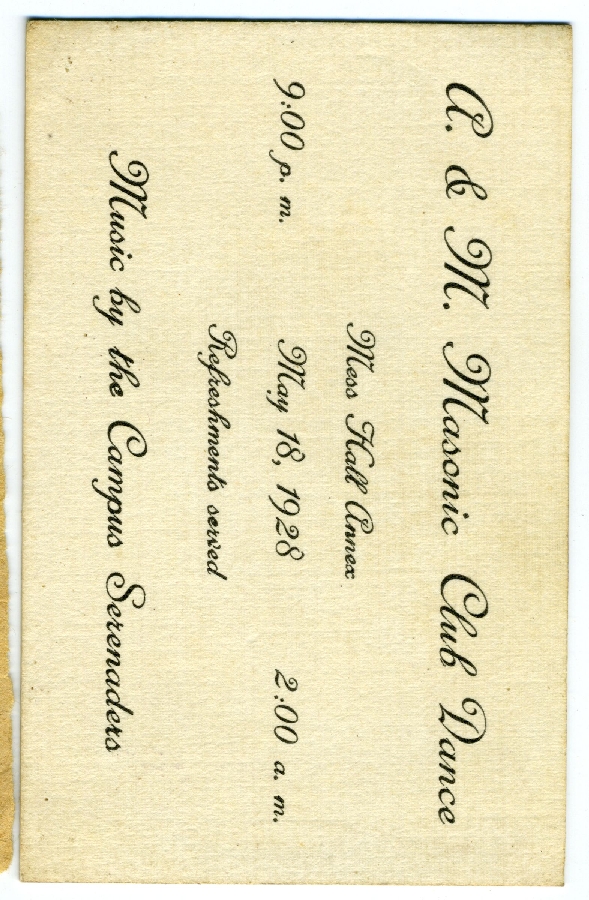 A. & M. Masonic Club Dance
Mess Hall Annex
9:00 p. m. May 18, 1928 2:00 a. m.
Refreshments served
Music by the Campus Serenaders